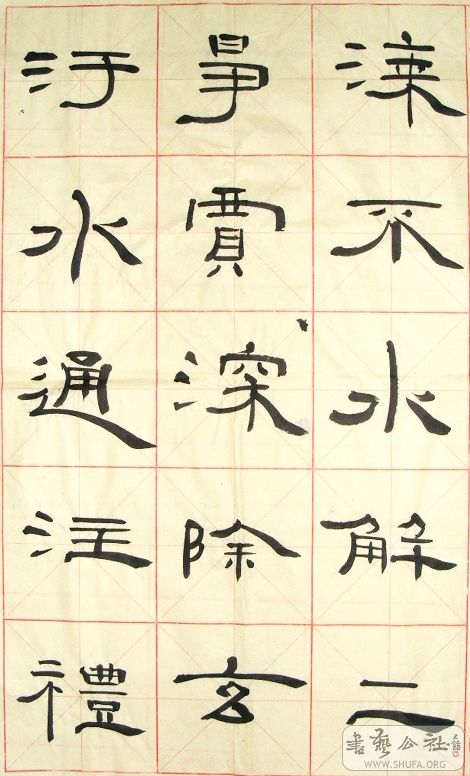 不水解二
爭賈深除玄
汙水通注禮
書藝公社
WWW.SHUFA.ORG